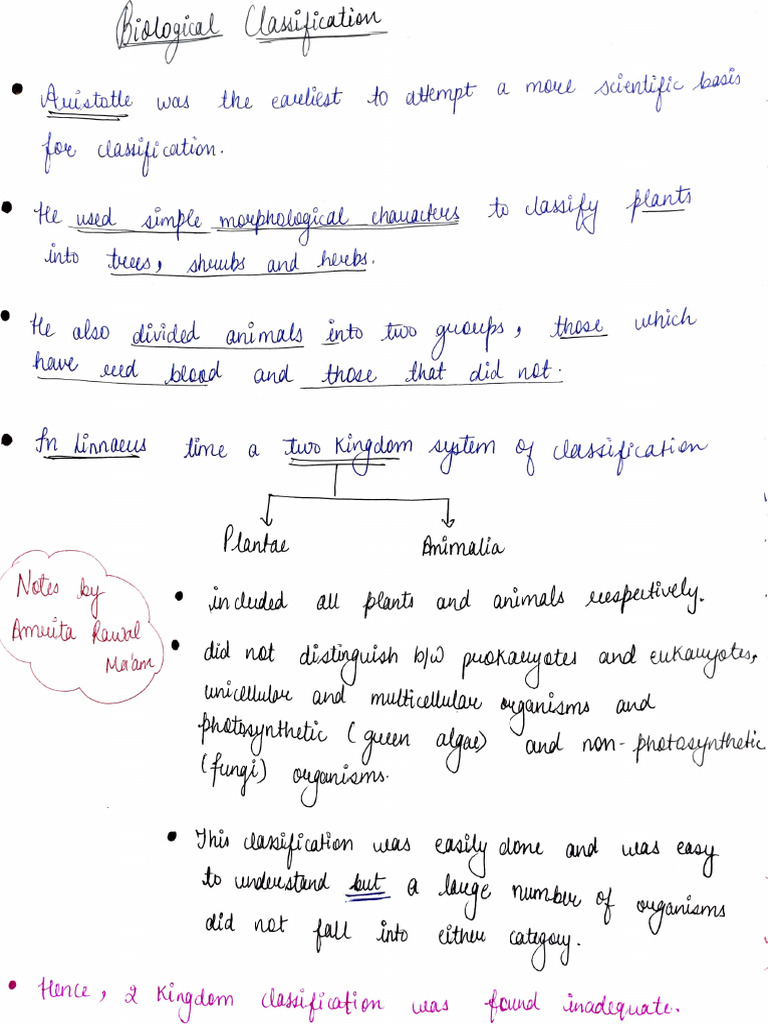 Biological Classification
• Aristotle was the earliest to attempt a more scientific basis
for classification.
• He used simple morphological characters to classify plants
into trees, shrubs and herbs.
• He also divided animals into two groups, those which
have red blood and those that did not.
• In Linnaeus time a two kingdom system of classification
Plantae Animalia
Notes by
Amrita Rawal
Ma'am
• included all plants and animals respectively.
• did not distinguish b/w prokaryotes and eukaryotes,
unicellular and multicellular organisms and
photosynthetic (green algae) and non-photosynthetic
(fungi) organisms.
• This classification was easily done and was easy
to understand but a large number of organisms
did not fall into either category.
• Hence, 2 Kingdom classification was found inadequate.